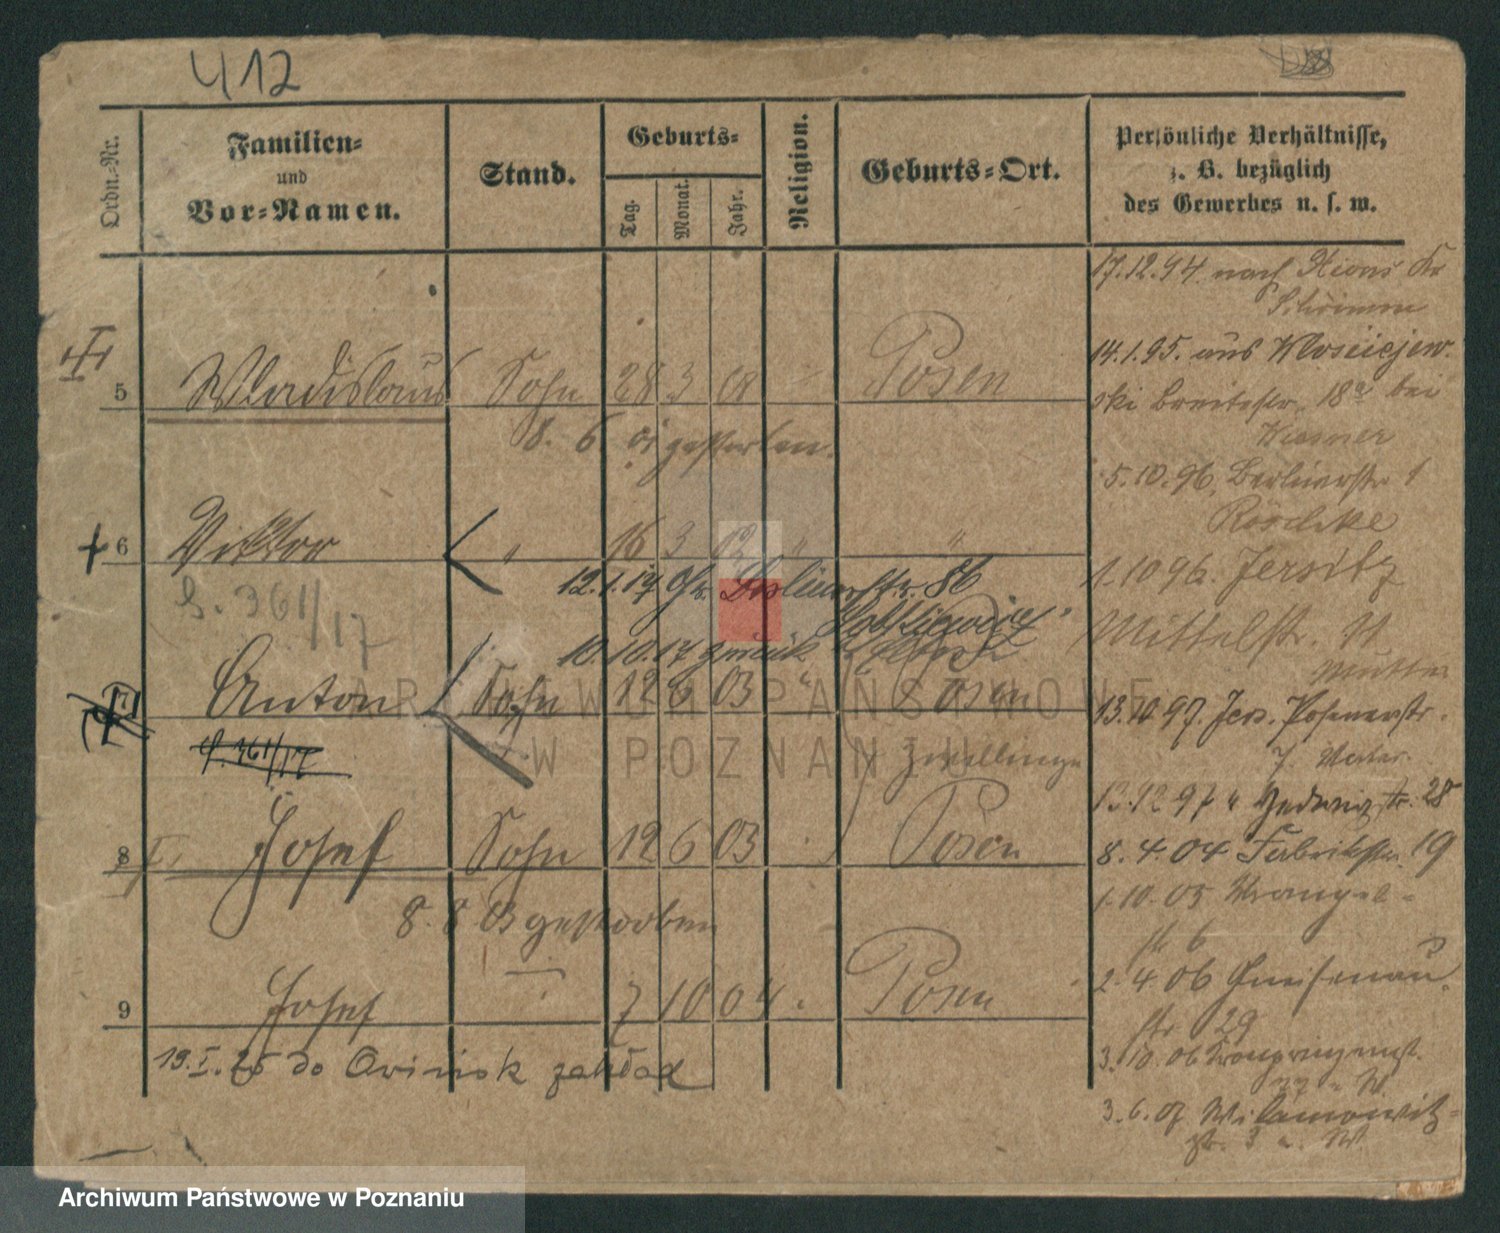 412
Ordn.-Nr.
Familien-
und
Vor-Namen.
Stand.
Geburts-
Tag.
Monat.
Jahr.
Religion.
Geburts-Ort.
Persönliche Verhältnisse,
z. B. bezüglich
des Gewerbes u. s. w.
5 Wladislaus Sohn 28 3 01 Posen
8. 6 01 gestorben.
6 Viktor " 16 3 02 " "
12.1.17 Gr. Berlinerstr. 86
S. 361/17
10.10.17 zurück
7 Anton Sohn 12 6 03 " Posen
S. 361/17
Zwillinge
8 Josef Sohn 12 6 03 Posen
8. 8 03 gestorben
9 Josef 7 10 04 Posen
19.I.25 do Owińsk zakład
17.12.94 nach Xions Kr
Schrimm
14.1.95. aus Wlosciejew.
ski Breitestr. 18a bei
5.10.96. Berlinerstr 1
1.10 96. Jersitz
Mittelstr. 11
Mutter
13.10 97. Jers. Posenerstr.
7. Vater.
13.12 97 " Hedwigstr. 28
8. 4. 04 Fabrikstr. 19
1.10. 05 Wrangel-
str 6
2. 4. 06 Gneisenau
str 29
3.10. 06 Kronprinzenst.
3. 6. 07 Wilamowitz-
str. 3 u. W
ARCHIWUM PAŃSTWOWE
W POZNANIU
Archiwum Państwowe w Poznaniu